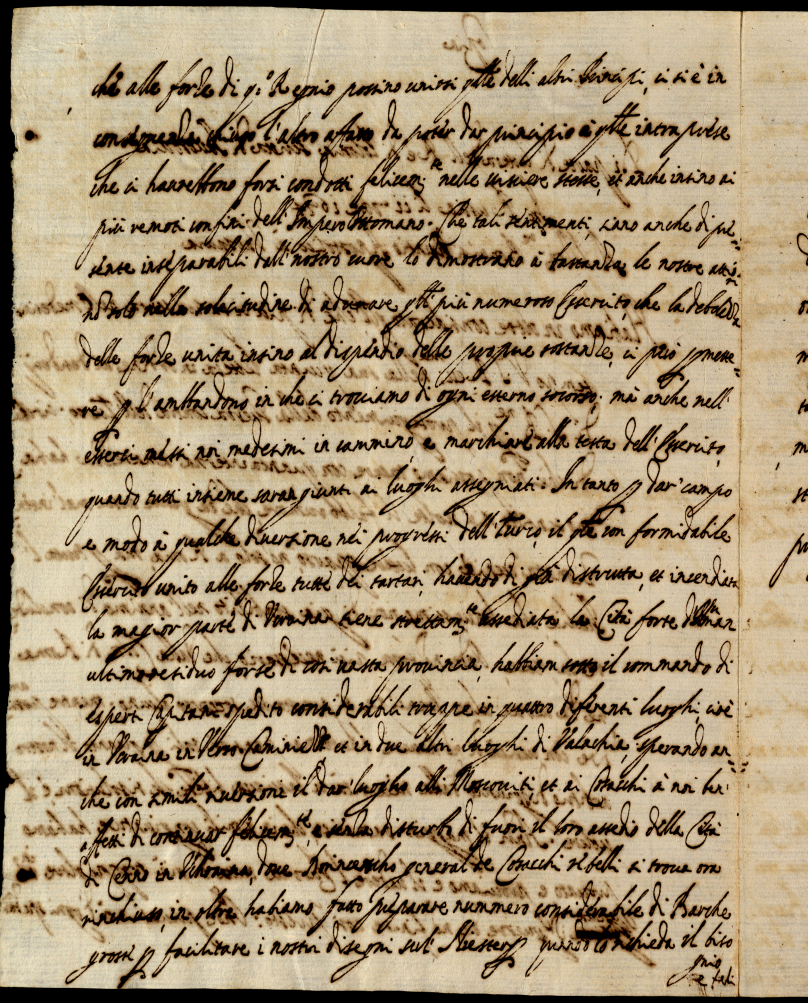 che alle forze di q.o Regnio possino unirsi q.lle delli altri Principi, ci si è in
consequenza chiuso l'altro affatto da poter dar principio à q.lle intraprése
che ci haurebbono forsi condotti felicem.te nelle visciere stesse, et anche insino ai
più remoti confini dell'Impero Ottomano. Che tali sentimenti, siano anche di pre=
sente inseparabili dall'nostro cuore lo dimostrano à bastanza le nostre attio.ni
nõ solo nella solecitudine di adunare q.ll più numeroso Esercito, che la debolezza
delle forze unita insino al dispendio delle proprie sostanze, ci può promette=
re p l'ambbandono in che ci trouiamo di ogni esterno socorso; mà anche nell'
esserci messi noi medesimi in cammino, e marchiare alla testa dell'Esercito,
quando tutti insieme saran giunti ai luoghi assegniati. In tanto p dar' campo
e modo à qualche diuersione néi progressi dell'Turco, il q.le con formidabile
Esercito unito alle forze tutte dei tartari, hauendo di già distrutta, et incendiata
la magior parte di Vcraina tiene strettam.te assediata la Cità forte di Uman
ultimo residuo forse di così uasta prouincia, habbiam sotto il commando di
esperti Capitani spedito considerabili trouppe in quattro differenti luoghi, cioè
in Vcraina in Verso Caminiez et in due altri luoghi di Valachia, sperando an=
che con simili diuersione il dar' luogho alli Moscouiti, et ai Cosacchi à noi ben'
affetti di continuar felicem.te, e senza disturbi di fuori il loro assedio della Cità
di in Vchraina, doue general de Cosacchi ribelli si troua ora
rinchiuso, in oltre habiamo fatto préparare nummero considerabile di Barche
grosse p facilitare i nostri disegni sul' Niester, quando lo richieda il biso
gnio
e tali